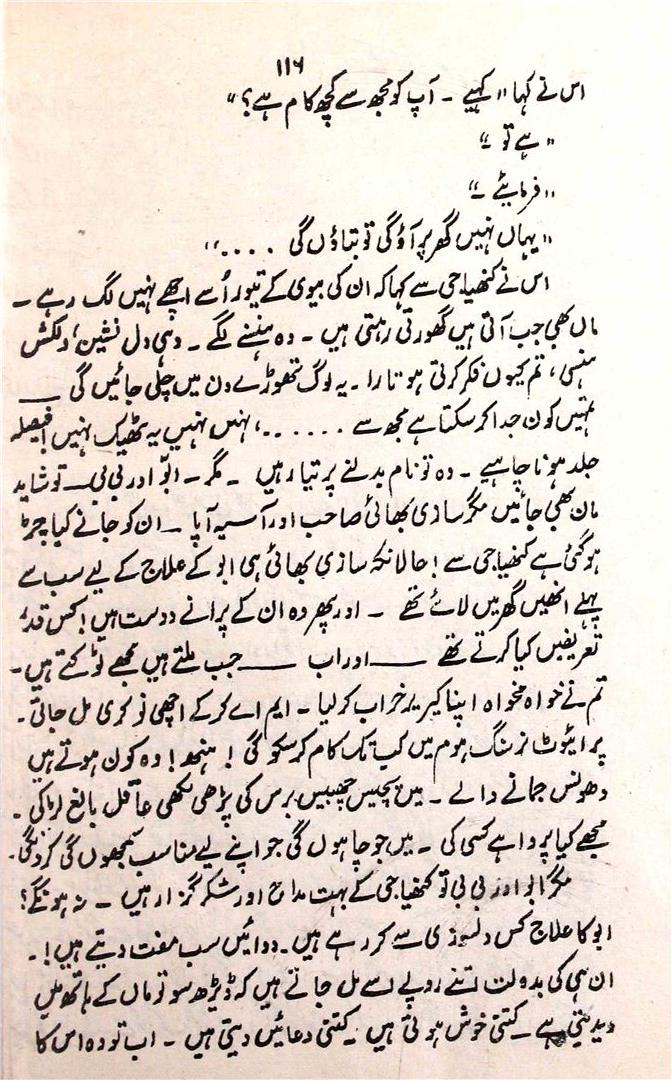 ۱۱۶
اس نے کہا "کہیے ۔ آپ کو مجھ سے کچھ کام ہے؟"
"ہے تو ۔"
"فرمایئے ۔"
"یہاں نہیں گھر پر آؤ گی تو بتاؤں گی ۔۔۔۔"
اس نے کنھیا جی سے کہا کہ ان کی بیوی کے تیور اُسے اچھے نہیں لگ رہے ۔
ماں بھی جب آتی ہیں گھورتی رہتی ہیں ۔ وہ ہنسنے لگے ۔ وہی دل نشین، دلکش
ہنسی، تم کیوں فکر کرتی ہو تارا ۔ یہ لوگ تھوڑے دن میں چلی جائیں گی ــــ
تمہیں کون جدا کر سکتا ہے مجھ سے ۔۔۔۔۔۔، نہیں نہیں یہ ٹھیک نہیں! فیصلہ
جلد ہونا چاہیے ۔ وہ تو نام بدلنے پر تیار ہیں ۔ مگر ۔ ابّو اور بی بی ــــ تو شاید
مان بھی جائیں مگر سازی بھائی صاحب اور آسیہ آپا ۔ ان کو جانے کیا چڑ
ہو گئی ہے کنھیا جی سے! حالانکہ سازی بھائی ہی ابو کے علاج کے لیے سب سے
پہلے انھیں گھر میں لائے تھے ۔ اور پھر وہ ان کے پرانے دوست ہیں! کس قدر
تعریفیں کیا کرتے تھے ــــ اور اب ــــ جب ملتے ہیں مجھے ٹوکتے ہیں ۔
تم نے خواہ مخواہ اپنا کیریر خراب کر لیا ۔ ایم اے کر کے اچھی نوکری مل جاتی ۔
پرائیوٹ نرسنگ ہوم میں کب تک کام کر سکو گی! ہنھہ! وہ کون ہوتے ہیں
دھونس جمانے والے ۔ میں پچیس چھبیس برس کی پڑھی لکھی عاقل بالغ لڑکی ۔
مجھے کیا پروا ہے کسی کی ۔ میں جو چاہوں گی جو اپنے لیے مناسب سمجھوں گی کرونگی ۔
مگر ابو اور بی بی تو کنھیا جی کے بہت مداح اور شکر گزار ہیں ۔ نہ ہونگے؟
ابو کا علاج کس دلسوزی سے کر رہے ہیں ۔ دوائیں سب مفت دیتے ہیں! ۔
ان ہی کی بدولت اتنے روپے اسے مل جاتے ہیں کہ ڈیڑھ سو تو ماں کے ہاتھ میں
دیدیتی ہے ۔ کتنی خوش ہوتی ہیں ۔ کتنی دعائیں دیتی ہیں ۔ اب تو وہ اس کا